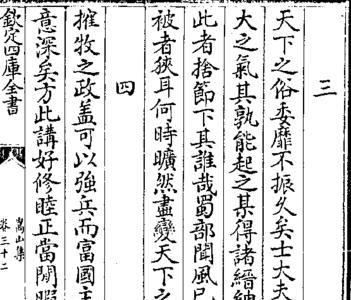 三
天下之俗委靡不振久矣士大夫
大之氣其孰能起之某得諸縉紳
此者捨節下其誰哉蜀部聞風已
被者狹耳何時曠然盡變天下之
四
摧牧之政蓋可以強兵而富國主
意深矣方此講好修睦正當閒暇
欽定四庫全書
嵩山集
卷三十二